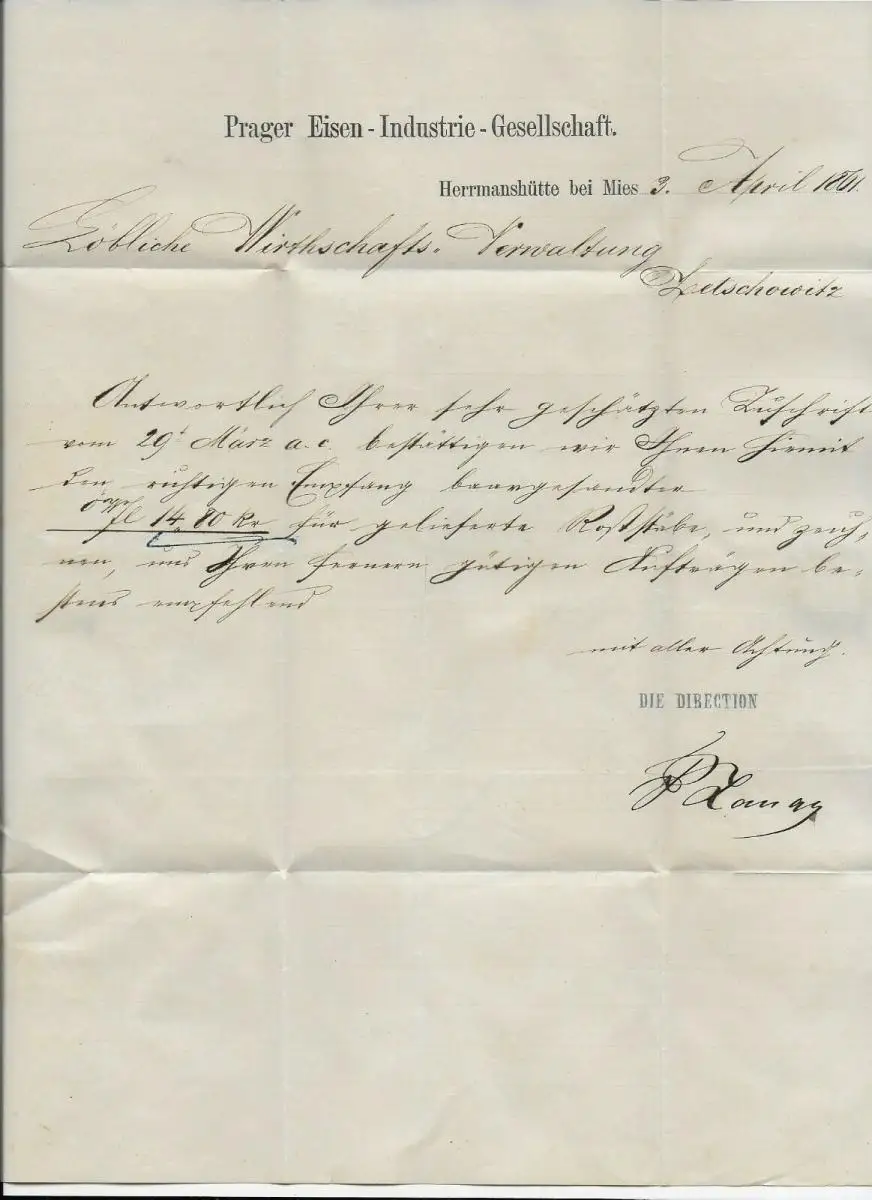 Prager Eisen-Industrie-Gesellschaft.
Herrmanshütte bei Mies 3. April 1861.
Löbliche Wirthschafts-Verwaltung
Antwortlich Ihrer sehr geschätzten Zuschrift
vom 29t März a. c. bestättigen wir Ihnen hiemit
den richtigen Empfang baargesandter
fl 14. 80 kr für gelieferte Roststäbe, und zeich-
nen, uns Ihren fernern gütigen Aufträgen be-
stens empfehlend
mit aller Achtung.
DIE DIRECTION